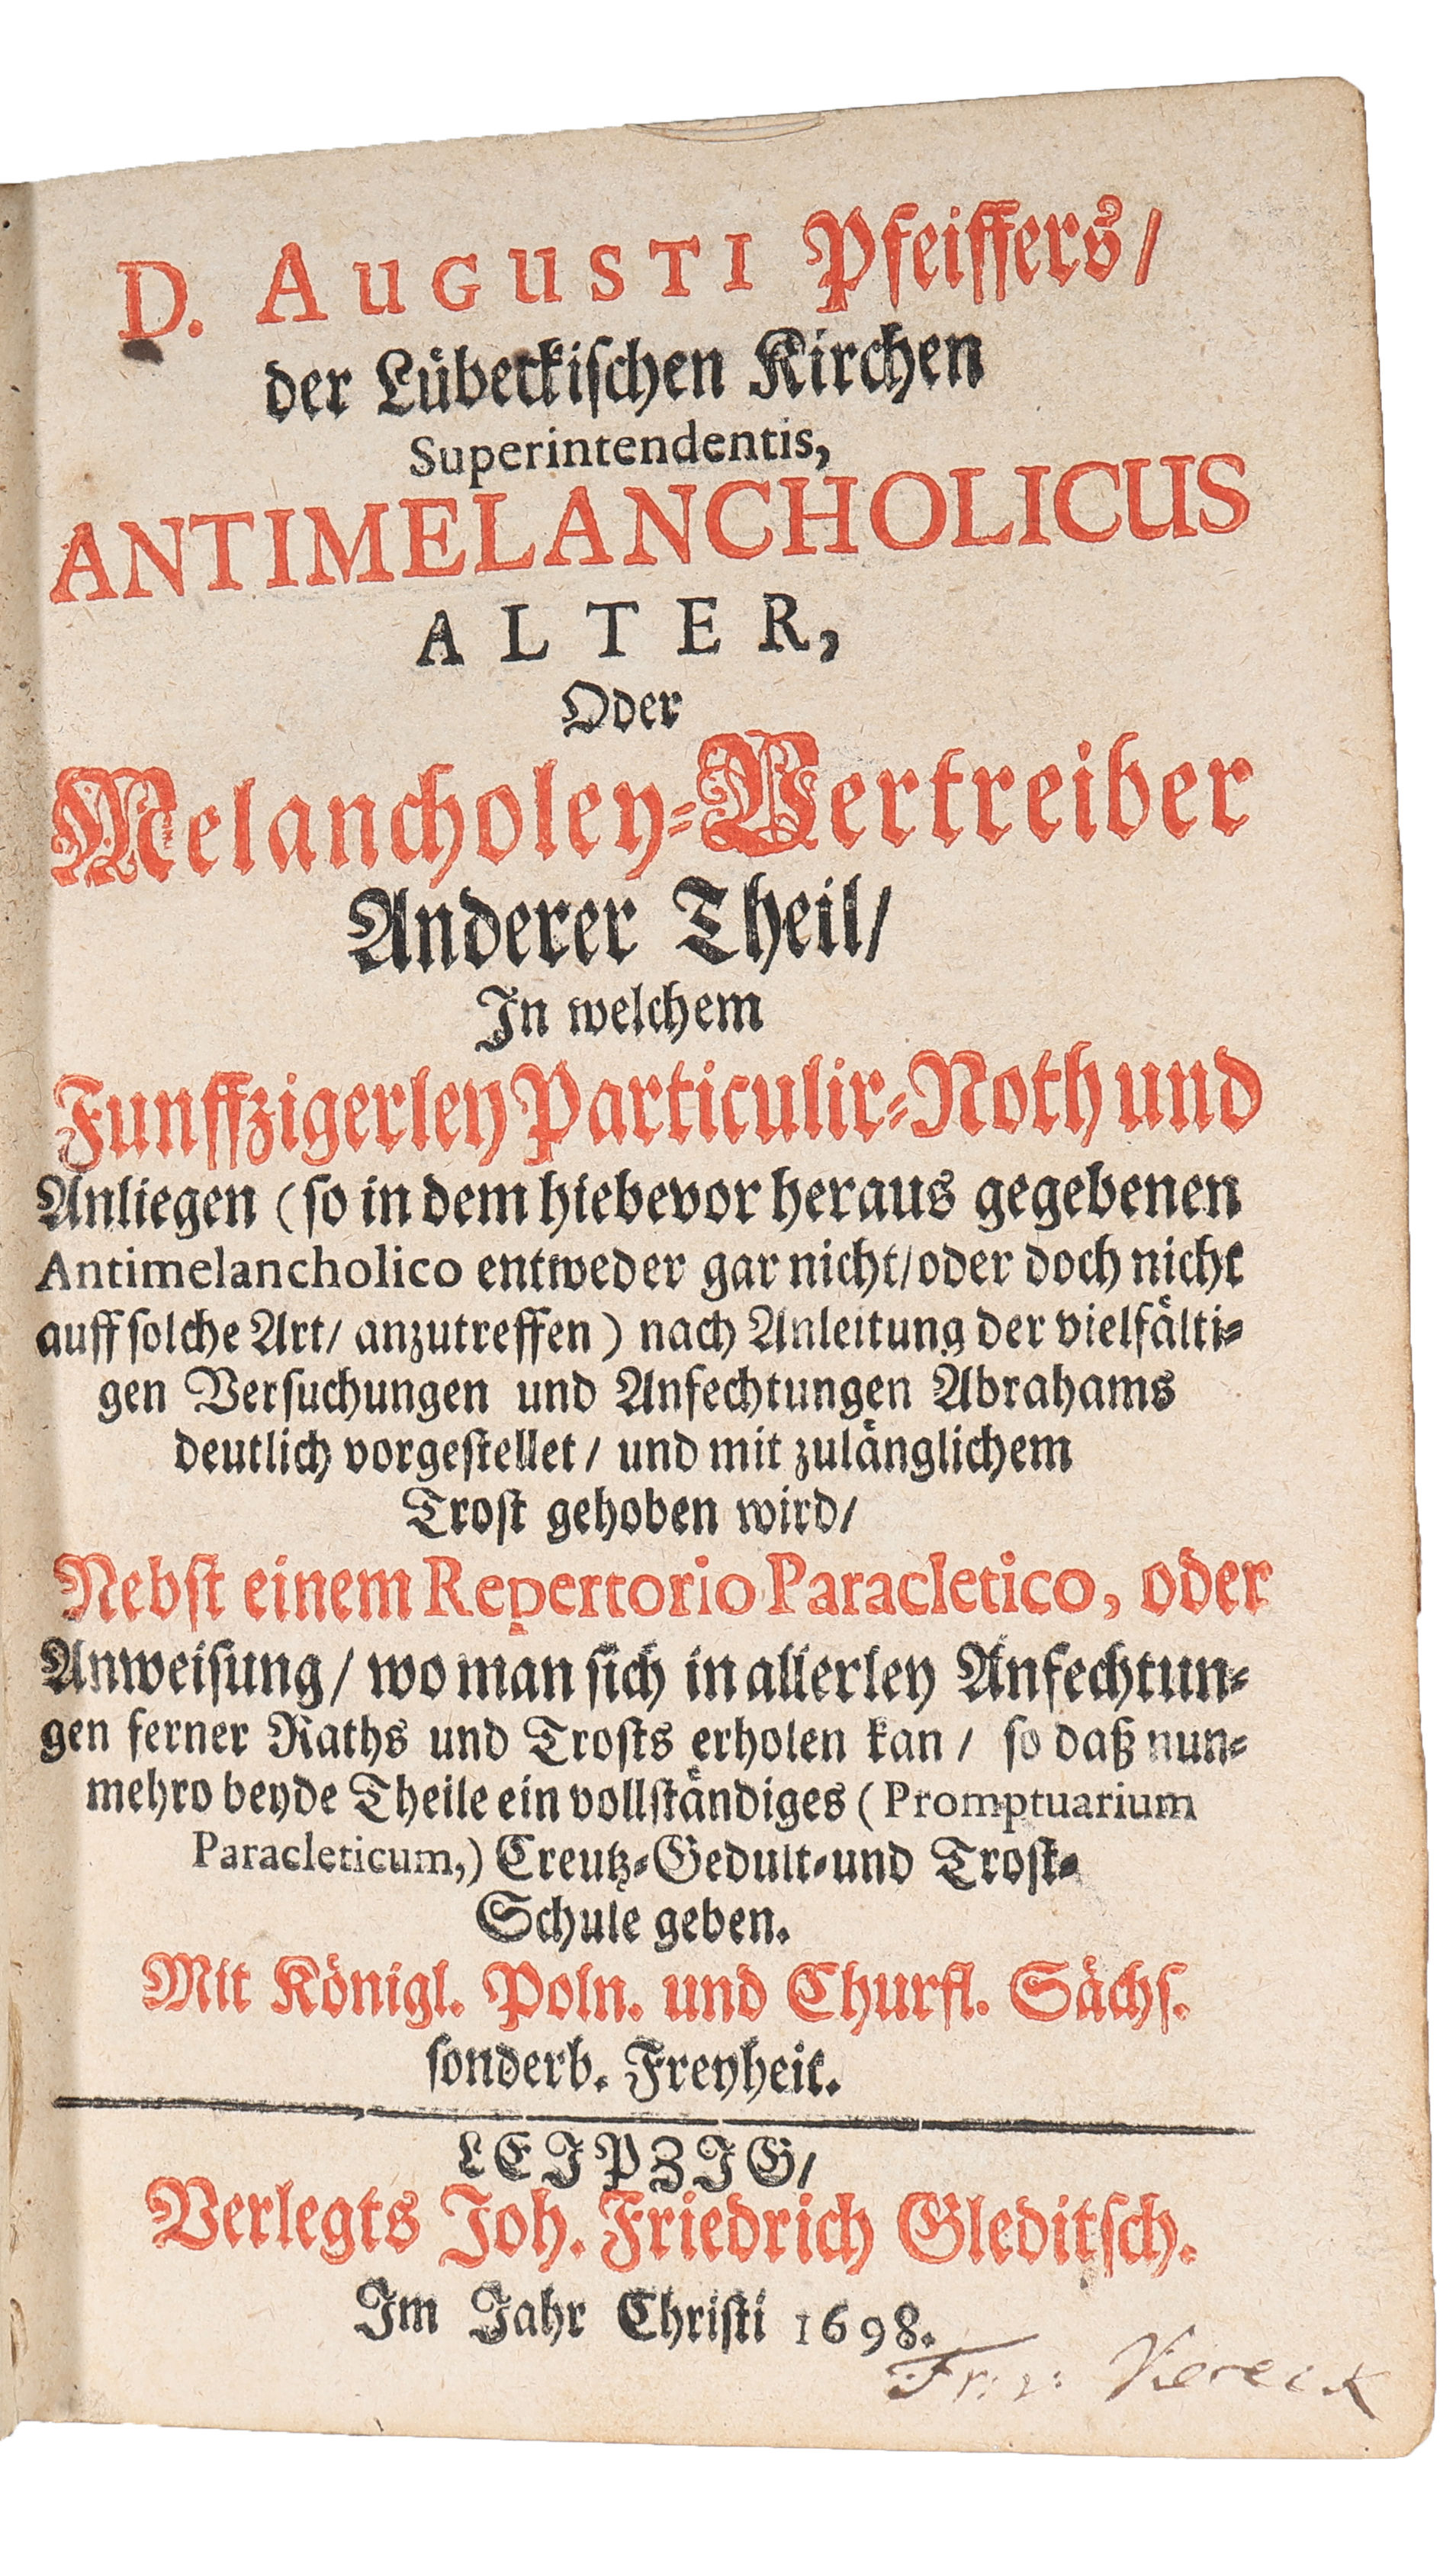 D. AuGusTI Pfeiffers/
der Lübeckischen Kirchen
Superintendentis,
ANTIMELANCHOLICUS
ALTER,
Oder
Melancholey-Vertreiber
Anderer Theil/
In welchem
Funffzigerley Particulir-Noth und
Anliegen (so in dem hiebevor heraus gegebenen
Antimelancholico entweder gar nicht/oder doch nicht
auff solche Art/ anzutreffen) nach Anleitung der vielfälti-
gen Versuchungen und Anfechtungen Abrahams
deutlich vorgestellet/ und mit zulänglichem
Trost gehoben wird/
Nebst einem Repertorio Paracletico, oder
Anweisung/ wo man sich in allerley Anfechtun-
gen ferner Raths und Trosts erholen kan/ so daß nun-
mehro beyde Theile ein vollständiges (Promptuarium
Paracleticum,) Creutz-Gedult-und Trost-
Schule geben.
Mit Königl. Poln. und Churfl. Sächs.
sonderb. Freyheit.
LEIPZIG/
Verlegts Joh. Friedrich Gleditsch.
Im Jahr Christi 1698.